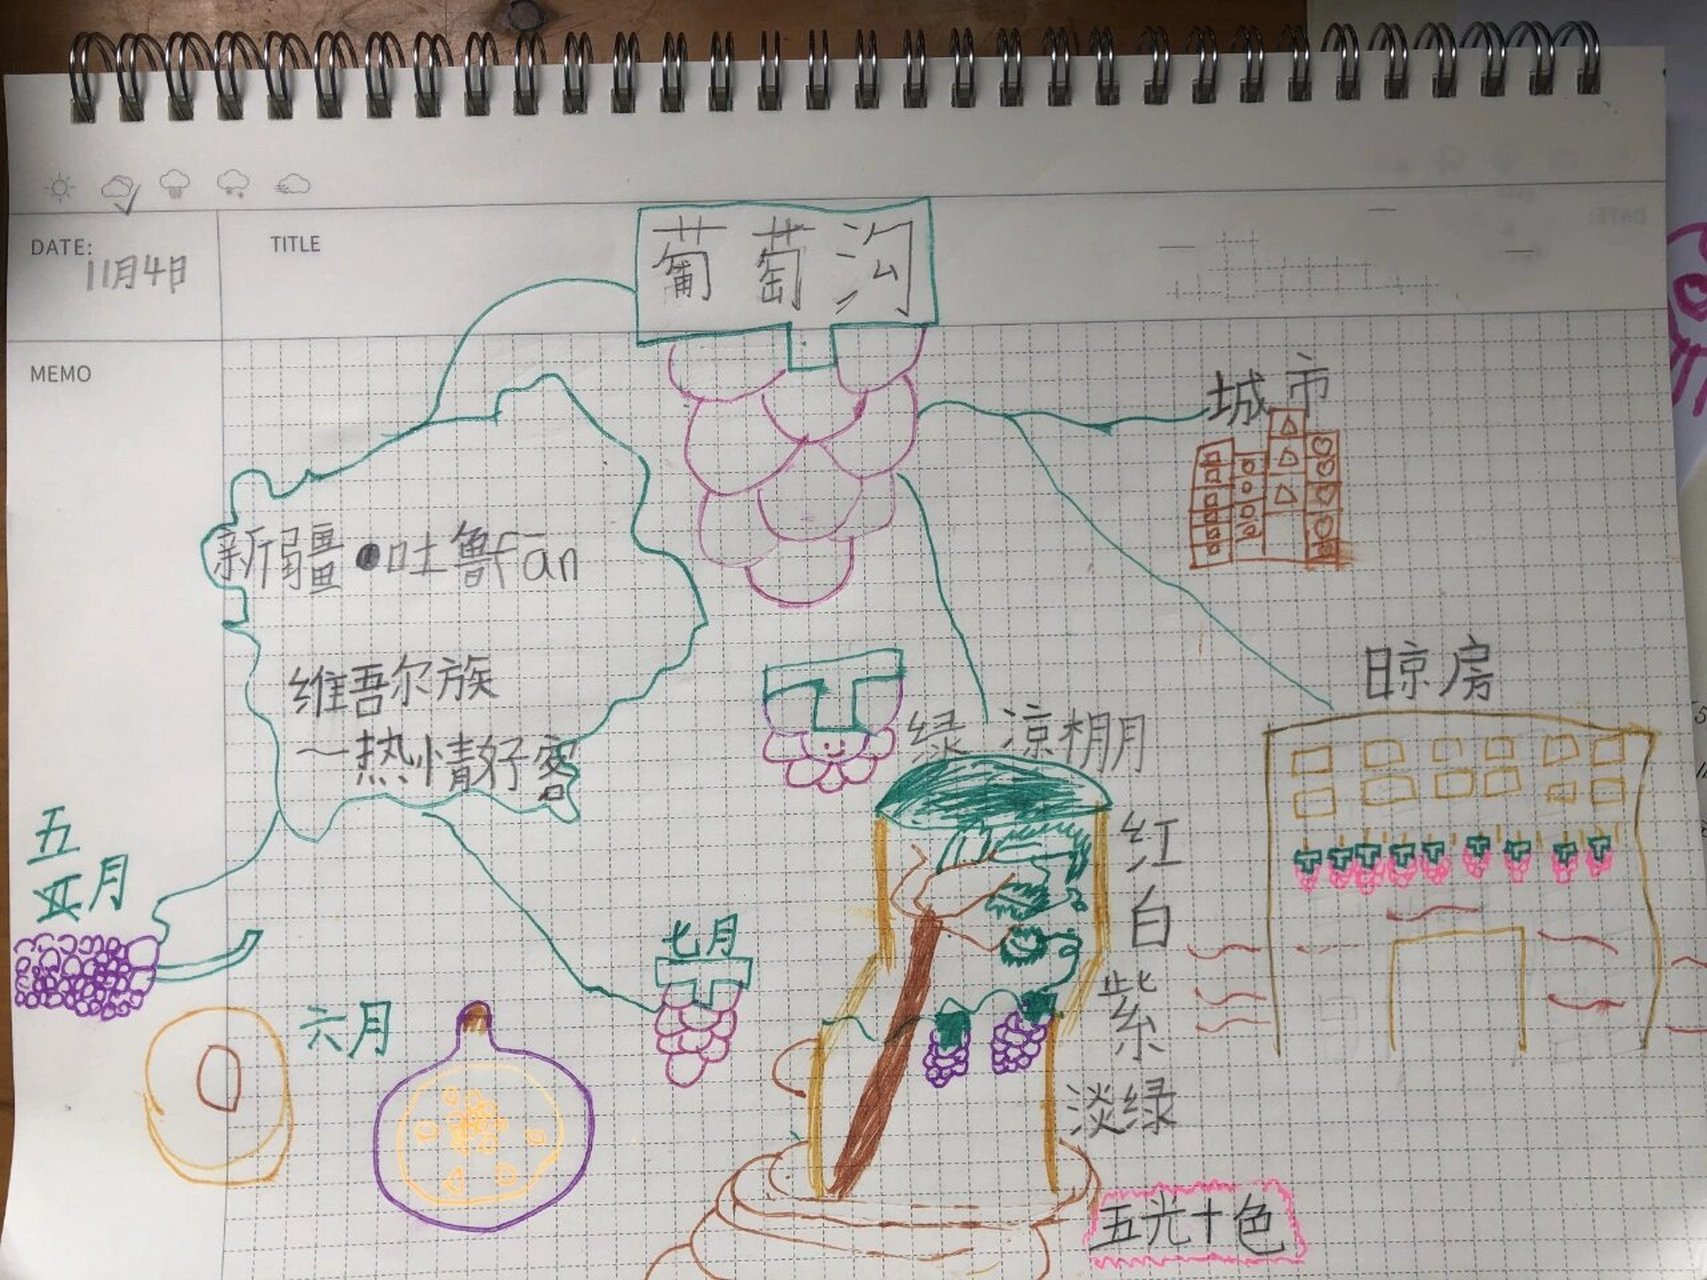 DATE:
11月4日
TITLE
葡萄沟
MEMO
城市
新疆·吐鲁fān
维吾尔族
~热情好客
晾房
绿 凉棚
红
白
紫
淡绿
五光十色
五
月
六月
七月